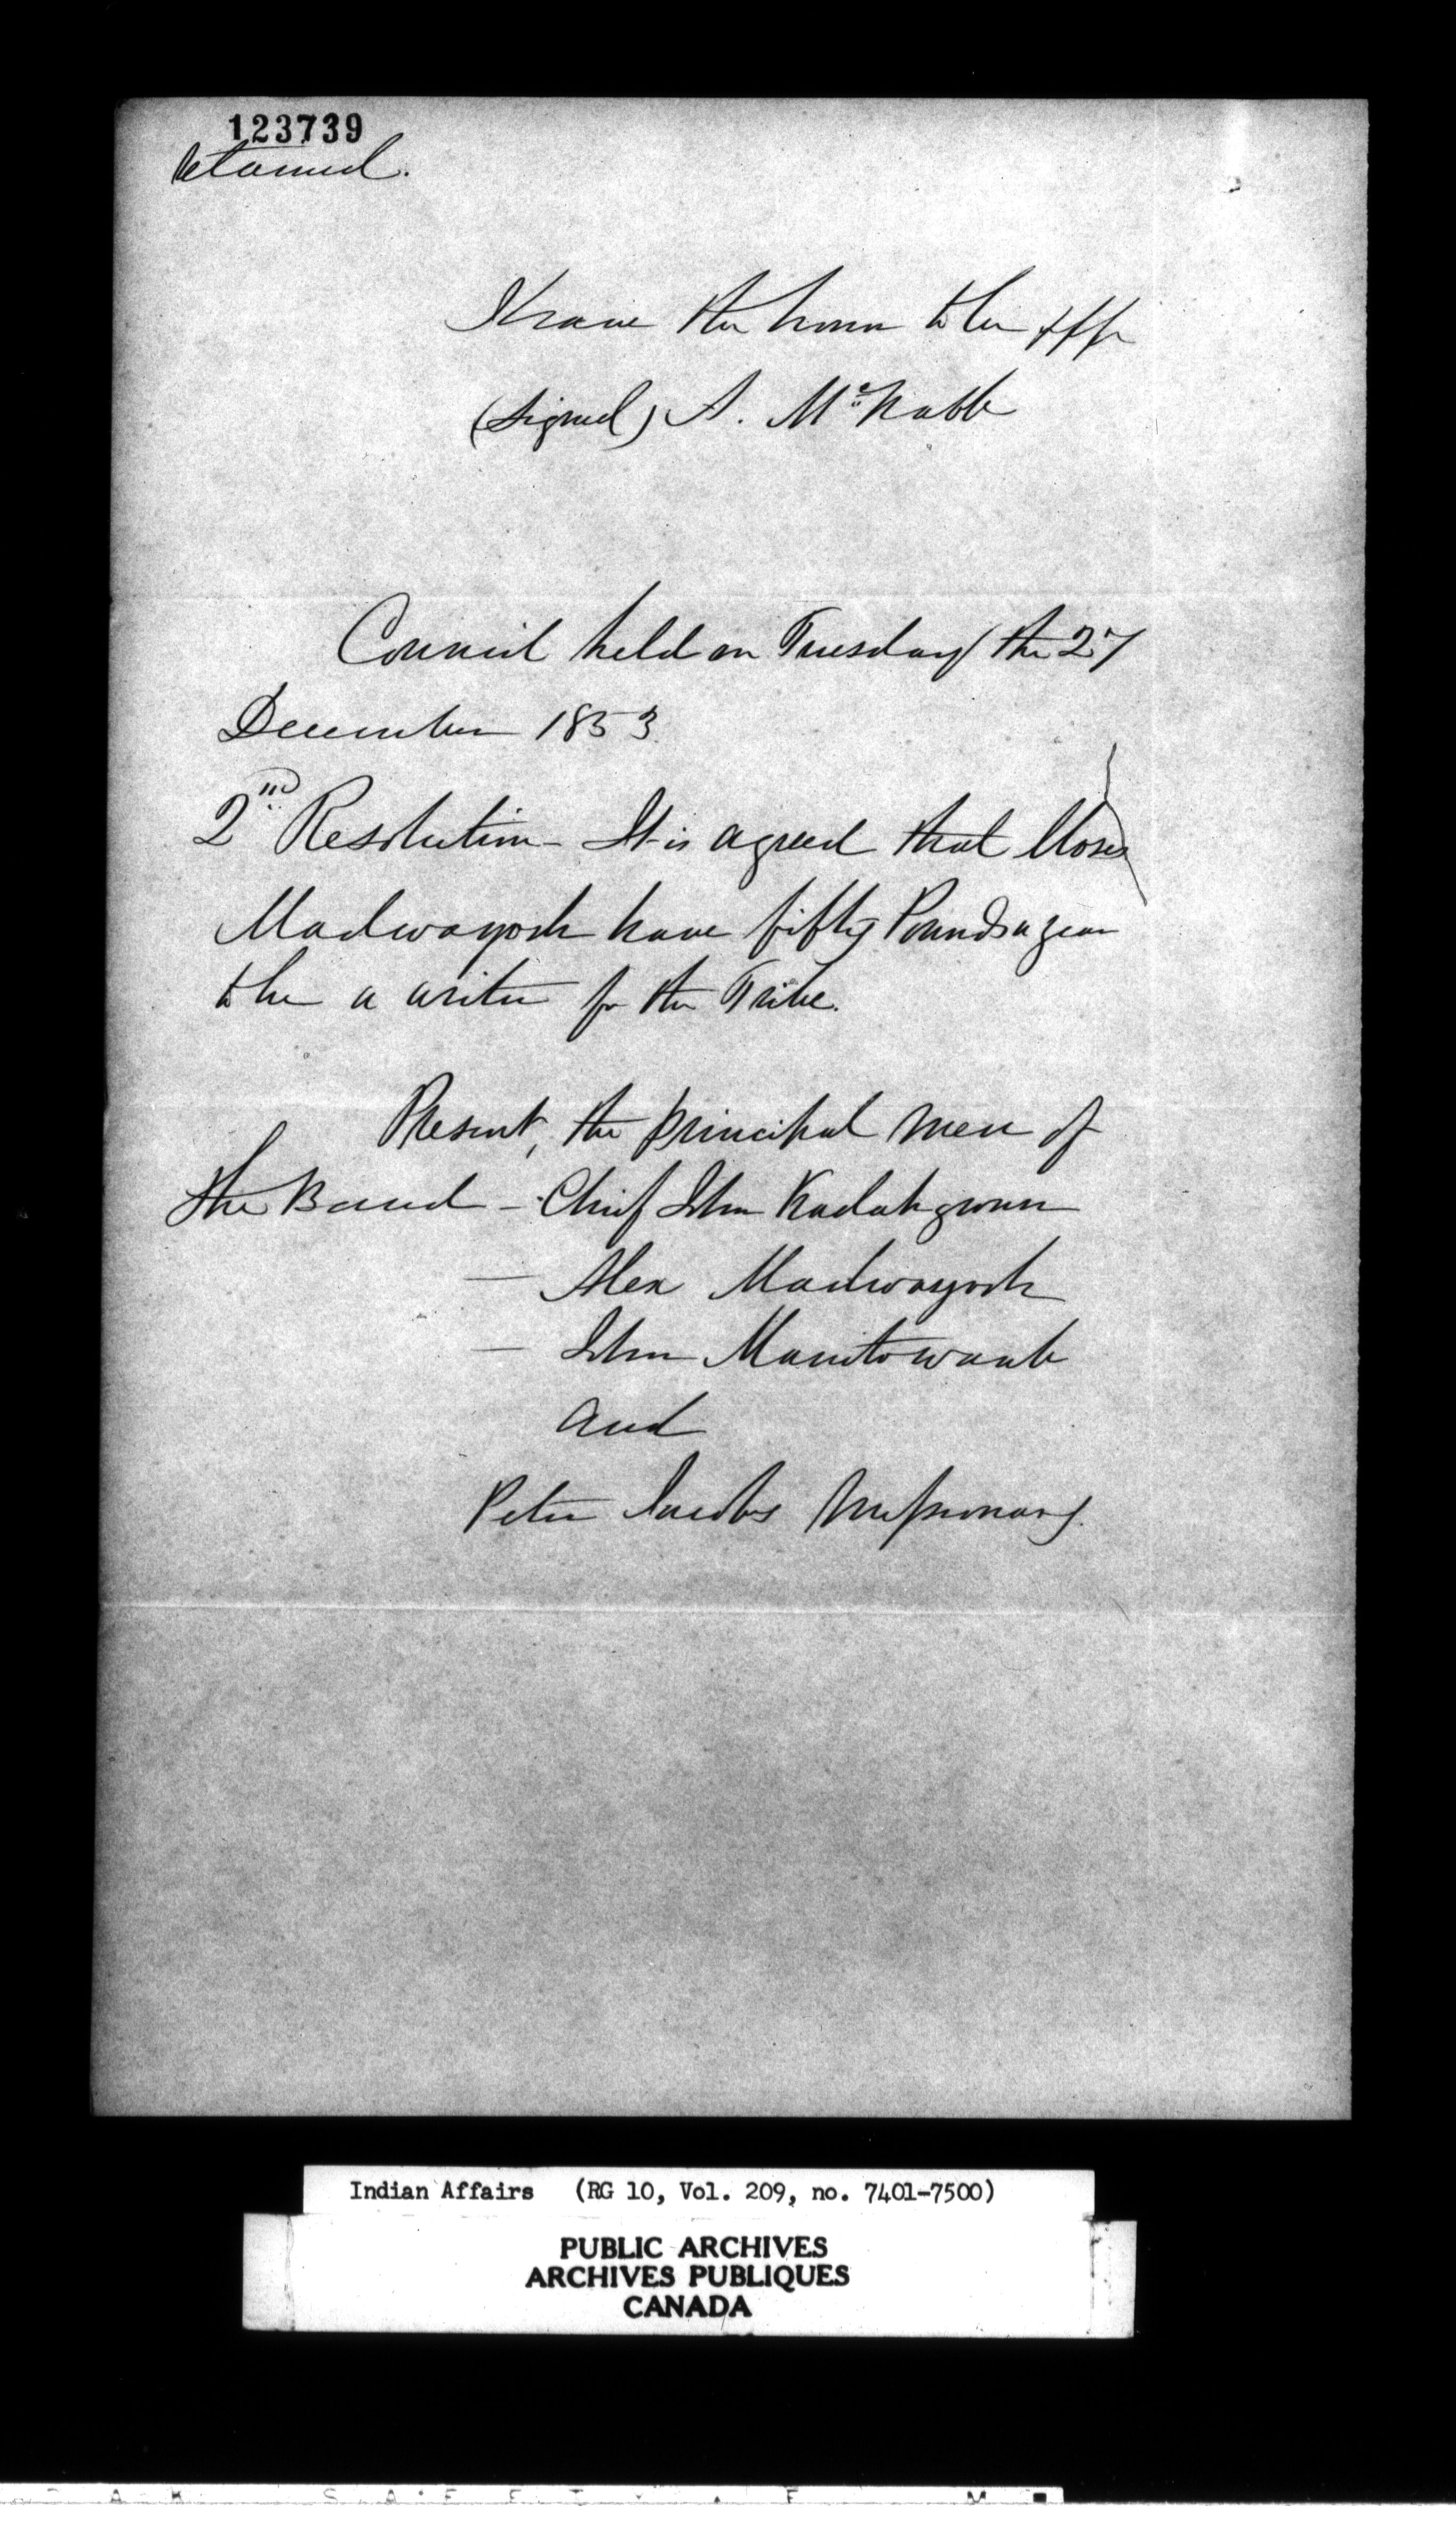 123739
retained.
I have the honor to be &ff
(signed) A. McNabb
Council held on Tuesday the 27
December 1853
2nd Resolution - It is agreed that Moses
Madwayosh have fifty Pounds a year
to be a writer for the Tribe.
Present, the principal men of
the Band - Chief John Kadahgwun
— Alex Madwayosh
— John Manitowaub
and
Peter Jacobs Missionary.
Indian Affairs (RG 10, Vol. 209, no. 7401-7500)
PUBLIC ARCHIVES
ARCHIVES PUBLIQUES
CANADA